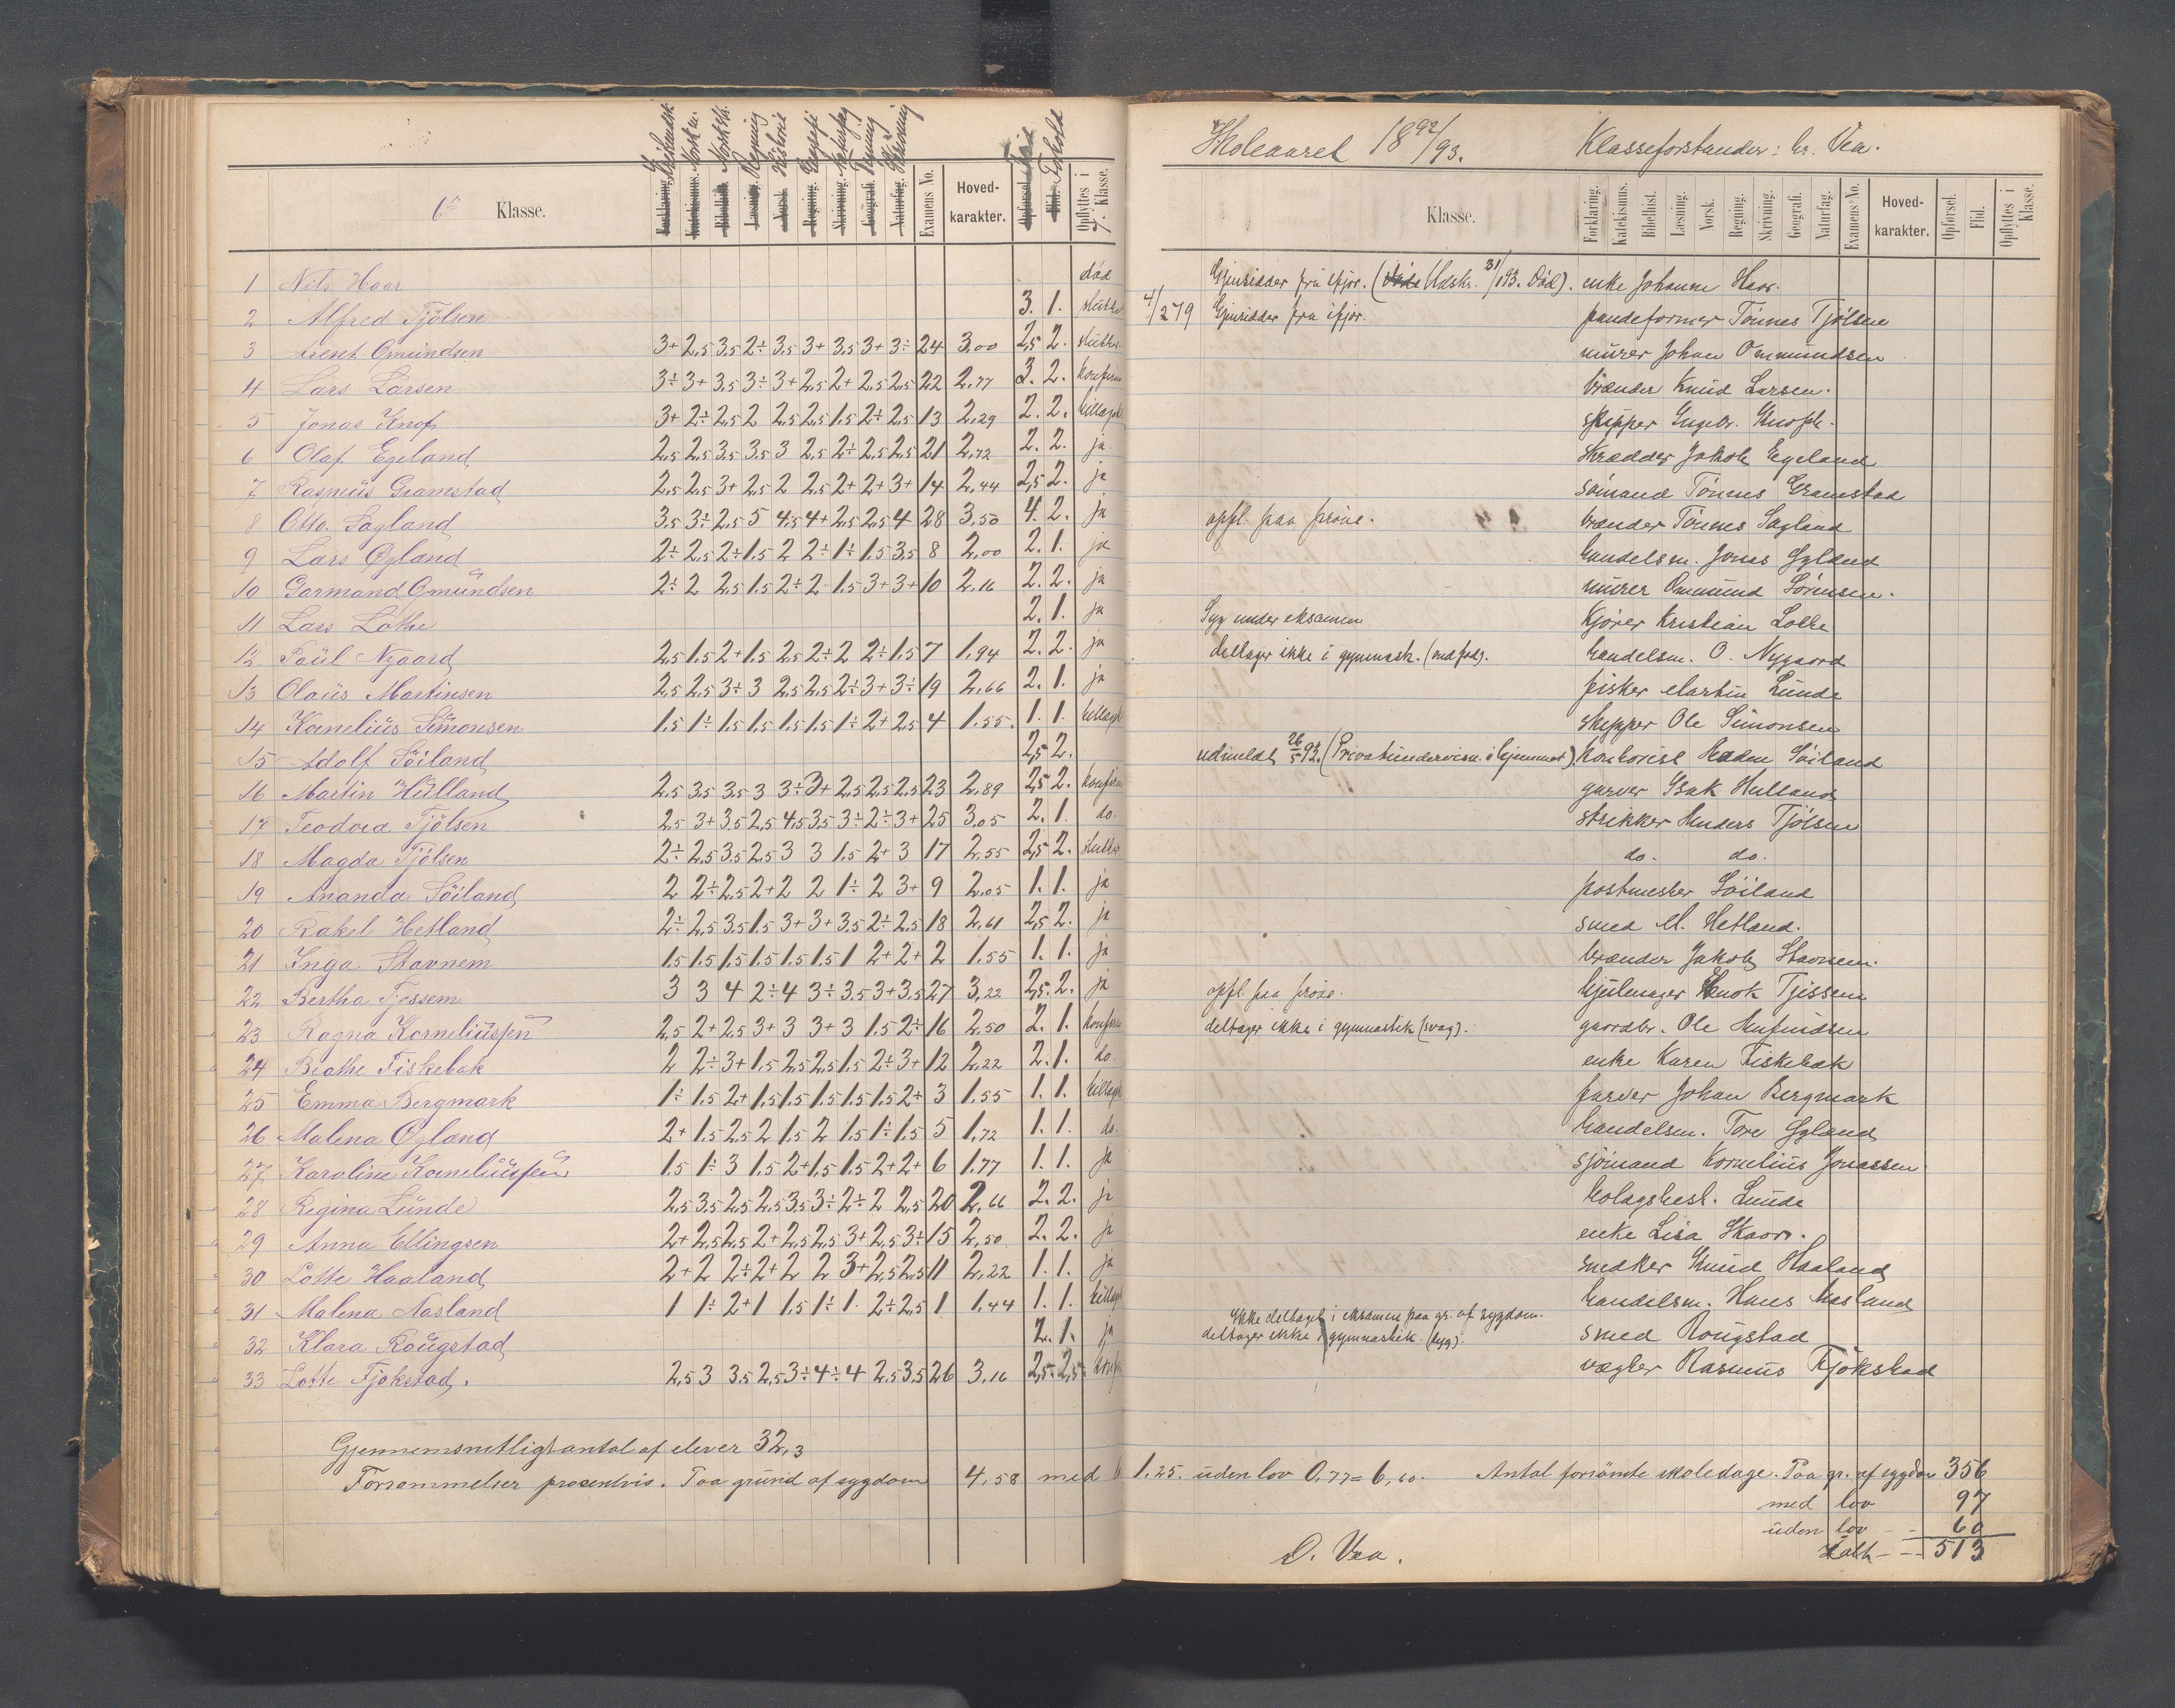 6te Klasse.
Kristendk. Norsk m. Norsk sk. Regning Historie Geografi Naturfag Tegning Skrivning
Forklaring. Katekismus. Bibelhist. Læsning. Norsk. Regning. Skrivning. Geografi. Naturfag. Examens No. Hoved-karakter. Opførsel. Flid. Opflyttes i 7. Klasse.
Flid Forhold
1 Nils Haar død
2 Alfred Tjölsen 3. 1. slutter
3 Arent Omundsen 3+ 2,5 3,5 2÷ 3,5 3+ 3,5 3+ 3÷ 24 3,00 2,5 2. slutter
4 Lars Larsen 3÷ 3+ 3,5 3÷ 3+ 2,5 2+ 2,5 2,5 22 2,77 3. 2. konfirm
5 Jonas Knof 3+ 2÷ 2,5 2 2,5 2,5 1,5 2÷ 2,5 13 2,29 2. 2.
6 Olaf Egeland 2,5 2,5 3,5 3,5 3 2,5 2÷ 2,5 2,5 21 2,72 2. 2. ja
7 Rasmus Gramstad 2,5 2,5 3+ 2,5 2 2,5 2+ 2+ 3+ 14 2,44 2,5 2. ja
8 Otto Sagland 3,5 3÷ 2,5 5 4,5 4+ 2,5 2,5 4 28 3,50 4. 2. ja
9 Lars Øgland 2÷ 2,5 2÷ 1,5 2 2÷ 1÷ 1,5 3,5 8 2,00 2. 1. ja
10 Garmand Omundsen 2÷ 2 2,5 1,5 2÷ 2 1,5 3+ 3+ 10 2,16 2. 2. ja
11 Lars Lothe 2. 1. ja
12 Paul Nygaard 2,5 1,5 2+ 1,5 2,5 2÷ 2 2÷ 1,5 7 1,94 2. 2. ja
13 Olaus Martinsen 2,5 2,5 3÷ 3 2,5 2,5 2÷ 3+ 3÷ 19 2,66 2. 1. ja
14 Kornelius Simonsen 1,5 1÷ 1,5 1,5 1,5 1,5 1÷ 2+ 2,5 4 1,55. 1. 1.
15 Adolf Söiland 2,5 2.
16 Martin Hulland 2,5 3,5 3,5 3 3÷ 3+ 2,5 2,5 2,5 23 2,89 2,5 2. konfirm
17 Teodora Tjölsen 2,5 3+ 3,5 2,5 4,5 3,5 3÷ 2÷ 3+ 25 3,05 2. 1. do.
18 Magda Tjölsen 2÷ 2,5 3,5 2,5 3 3 1,5 2+ 3 17 2,55 2,5 2. slutter
19 Ananda Söiland 2 2÷ 2,5 2+ 2 2 1÷ 2 3+ 9 2,05 1. 1. ja
20 Rakel Hetland 2÷ 2,5 3,5 1,5 3+ 3+ 3,5 2÷ 2,5 18 2,61 2,5 2. ja
21 Inga Stavnem 1,5 1,5 1,5 1,5 1,5 1,5 1 2+ 2+ 2 1,55 1. 1. ja
22 Bertha Tjessem 3 3 4 2÷ 4 3÷ 3,5 3+ 3,5 27 3,22 2,5. 2. ja
23 Ragna Korneliussen 2,5 2+ 2,5 3+ 3 3+ 3 1,5 2÷ 16 2,50 2. 1. konfirm
24 Beathe Fiskebæk 2 2÷ 3+ 1,5 2,5 2,5 1,5 2÷ 3+ 12 2,22 2. 1. do
25 Emma Bergmark 1÷ 1,5 2+ 1,5 1,5 1,5 1,5 1,5 2+ 3 1,55 1. 1.
26 Malena Øgland 2+ 1,5 2,5 2 1,5 2 1,5 1÷ 1,5 5 1,72 1. 1. do.
27 Karoline Korneliussen 1,5 1÷ 3 1,5 2+ 1,5 1,5 2+ 2+ 6 1,77 1. 1. ja
28 Regina Lunde 2,5 3,5 2,5 2,5 3,5 3÷ 2÷ 2 2,5 20 2,66 2. 2. ja
29 Anna Ellingsen 2+ 2,5 2,5 2+ 2,5 2,5 3+ 2,5 3÷ 15 2,50 2. 2. ja
30 Lotte Haaland 2+ 2 2÷ 2+ 2 2 3+ 2,5 2,5 11 2,22 1. 1. ja
31 Malena Nasland 1 1÷ 2+ 1 1,5 1÷ 1. 2÷ 2,5 1 1,44 1. 1.
32 Klara Rougstad 2. 1. ja
33 Lotte Fjokstad. 2,5 3 3,5 2,5 3÷ 4÷ 4 2,5 3,5 26 3,16 2,5. 2,5. konf
Gjennemsnitligt antal af elever 32,3
Forsømmelser prosentvis. Paa grund af sygdom 4,58 med
Skoleaaret 1892/93. Klasseforstander: hr. Vea.
Klasse. Forklaring. Katekismus. Bibelhist. Læsning. Norsk. Regning. Skrivning. Geografi. Naturfag. Examens No. Hoved-karakter. Opførsel. Flid. Opflyttes i Klasse.
Gjensidder fra ifjor. (Udskr. 31/1 93. Død). enke Johanne Haar.
4/279 Gjensidder fra ifjor. pandeformer Tönnes Tjölsen
murer Johan Ommundsen
brænder Knud Larsen.
skipper Ingebr. Knoph.
skrædder Jakob Egeland
sömand Tönnes Gramstad
opfl. paa pröve. brænder Tönnes Sagland
handelsm. Jonas Øgland
murer Ommund Sörensen.
Syg under eksamen kjörer Kristian Lothe
deltager ikke i gymnastik. handelsm. O. Nygaard
fisker Martin Lunde
skipper Ole Simonsen
udmeldt 26/5 93. (Privatundervisn. i hjemmet). kontorist Söiland
garver Isak Hulland
strikker Anders Tjölsen
do. do.
postmester Söiland
smed M. Hetland.
brænder Jakob Stavnem.
opfl. paa pröve. hjulmager Enok Tjessem
deltager ikke i gymnastik (svag). gaardbr. Ole Amundsen
enke Karen Fiskebæk
farver Johan Bergmark
handelsm. Tore Øgland
sjömand Kornelius Jonassen
bolagsbest. Lunde
enke Lisa Skaar.
snedker Knud Haaland
handelsm. Hans Nasland
Ikke deltaget i eksamen paa gr. af sygdom.
deltager ikke i gymnastik. (syg). smed Rougstad
vægter Rasmus Fjökstad
1,25. uden lov 0,77 = 6,60. Antal forsömte skoledage. Paa gr. af sygdom 356
med lov 97
uden lov - - 60
Ialt - - - 513
O. Vea.